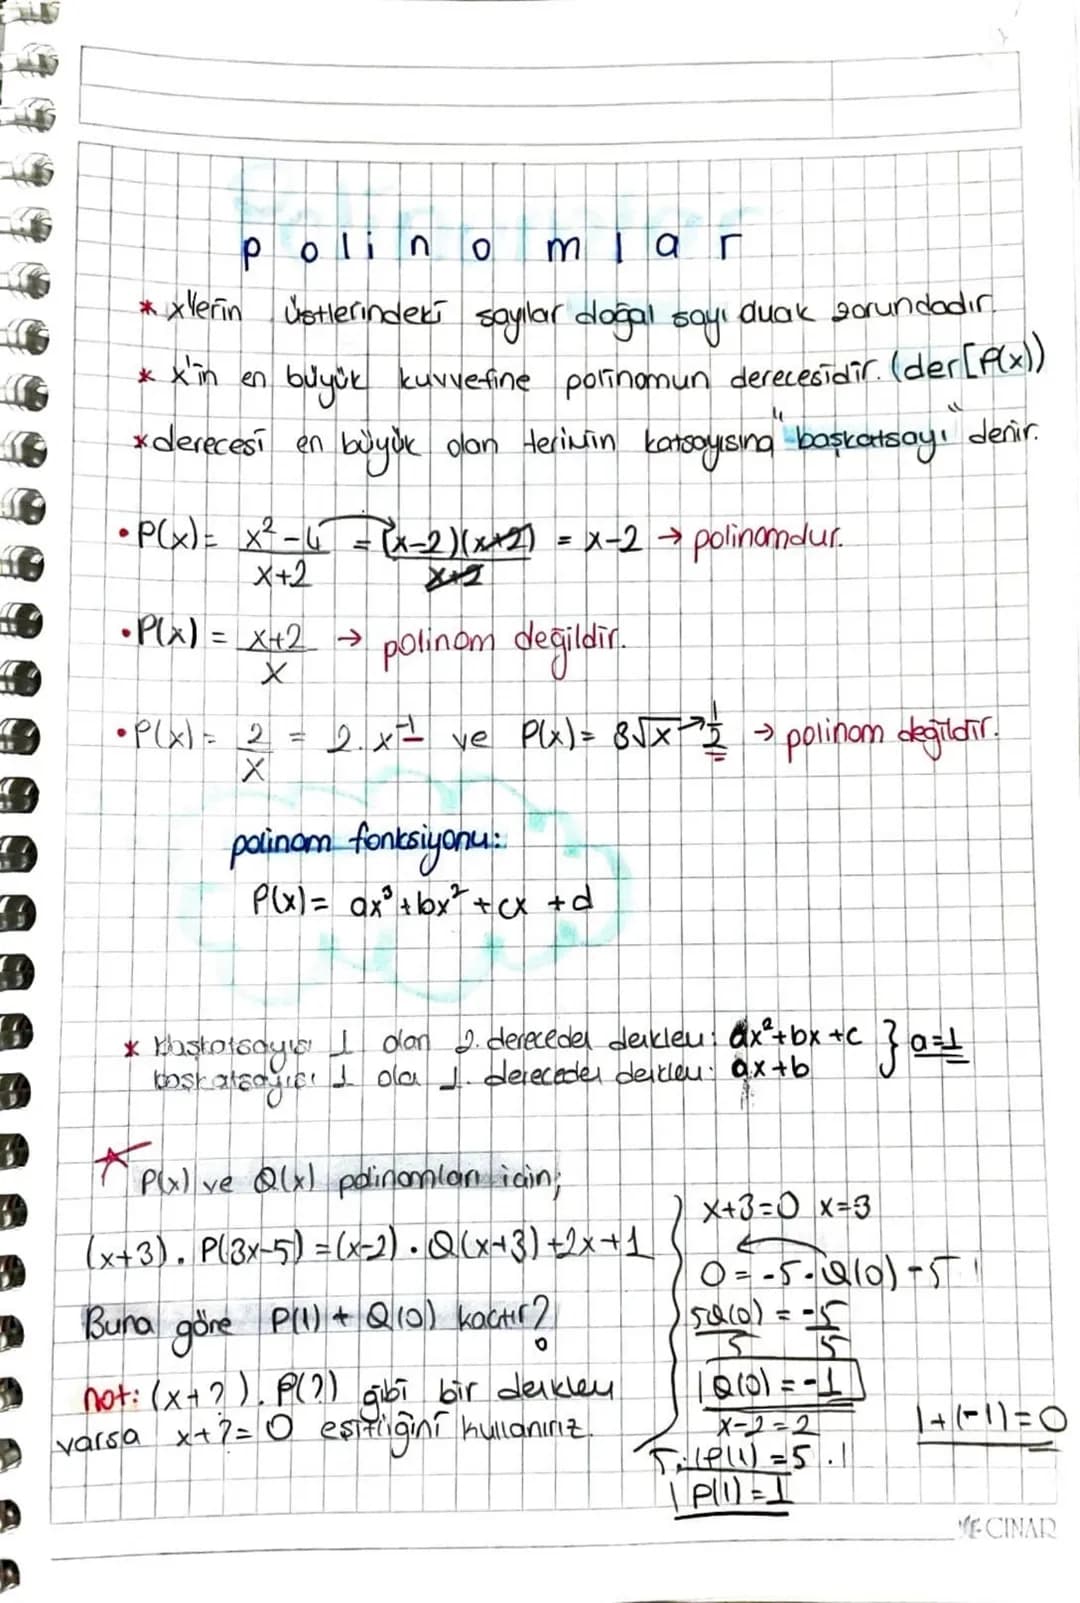 polinomlar
* x'lerin üstlerindeki sayılar doğal sayı olmak zorundadır.
* x'in en büyük kuvvetine polinomun derecesidir. (der[P(x))
* derecesi en büyük olan terimin katsayısına "başkatsayı" denir.
• P(x) = x²-4 / x+2 = (x-2)(x+2) / x+2 = x-2 → polinomdur.
• P(x) = x+2 / x → polinom değildir.
• P(x) = 2/x = 2.x⁻¹ ve P(x) = 8√x → 1/2 → polinom değildir.
polinom fonksiyonu:
P(x) = ax³+bx²+cx+d
* Başkatsayısı 1 olan 2. dereceden denklem: ax²+bx+c } a=1
başkatsayısı 1 olan 1. dereceden denklem: ax+b
P(x) ve Q(x) polinomları için;
(x+3). P(3x-5) = (x-2). Q(x+3)+2x+1
Buna göre P(1) + Q(0) kaçtır?
not: (x+?). P(?) gibi bir denklem
varsa x+?=0 eşitliğini kullanırız.
x+3=0 x=3
0 = -5.Q(0)-5
5Q(0) = -5
5 5
Q(0) = -1
x-2=2
5.(P(1) = 5.1
P(1) = 1
1+(-1)=0
ÇINAR